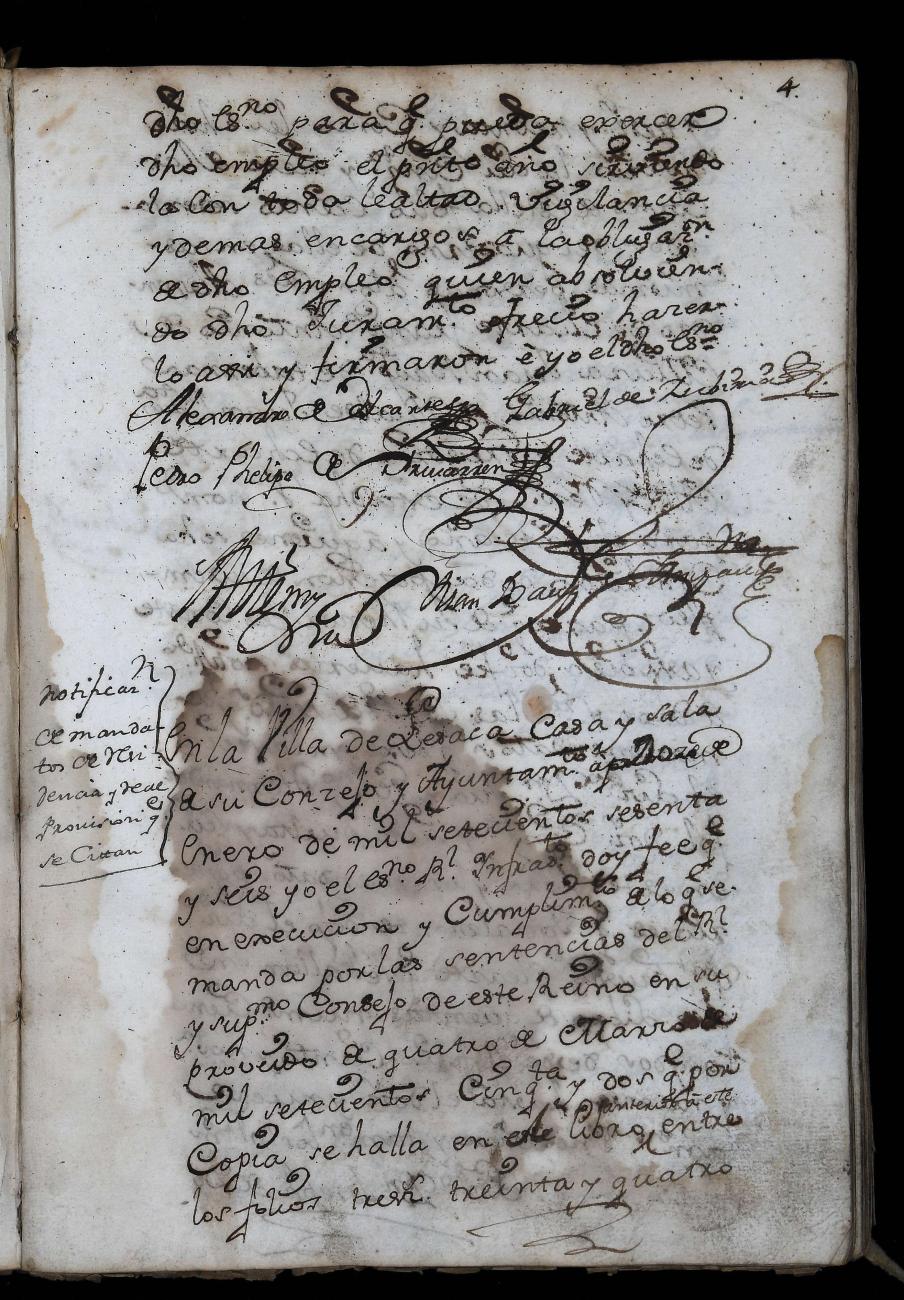 4
dho esno para q pueda exercer
dho empleo el pnte año sirviendo
la con toda lealtad vigilancia
y demas encargos a la obligaon
de dho Empleo quien absolvien-
do dho Juramto ofrecio hazer-
lo assi y firmaron e yo el dho Esno
Alexandro de Gabriel de
Pedro Phelipe de
Juan
notificaon
de manda-
tos de Resi
dencia y de la
Provision q
se Cittan
En la Villa de Lesaca Casa y sala
de su Conzejo y Ayuntamto a doze de
Enero de mil setecientos sesenta
y seis yo el esno Rl Infrado doy fee q
en execucion y Cumplimto de lo q se
manda por las sentencias del Rl
y supmo Consejo de este Reino en su
proveido de quatro de Marzo de
mil setecientos Cinqta y dos q por
Copia se halla en el Libro anterior a este entre
los folios treinta y quatro